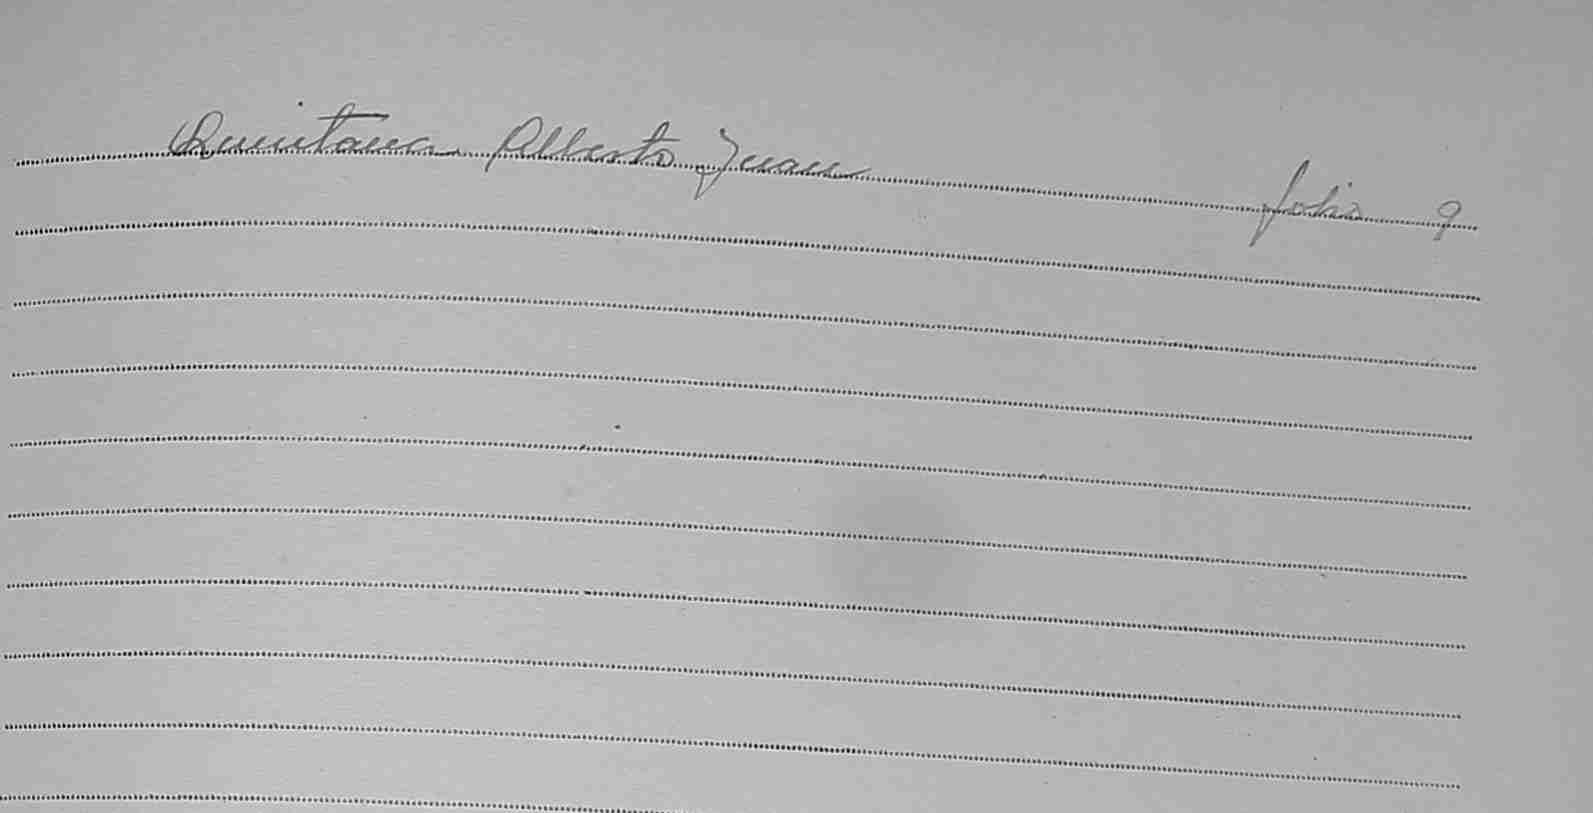 Quintana Alberto Juan folio 9